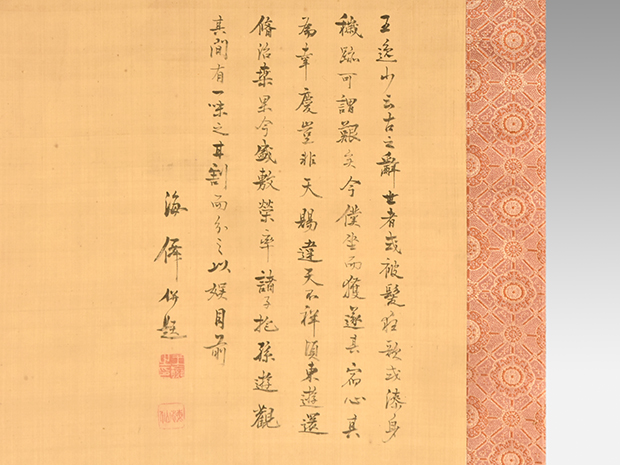 王逸少云古之辭世者或被髮狂歌或漆身
穢跡可謂艱矣今僕坐而獲遂其宿心其
為幸慶豈非天賜違天不祥頃東遊還
脩治桑果今盛敷榮率諸子抱孫遊觀
其間有一味之甘割而分之以娛目前
海僊併題